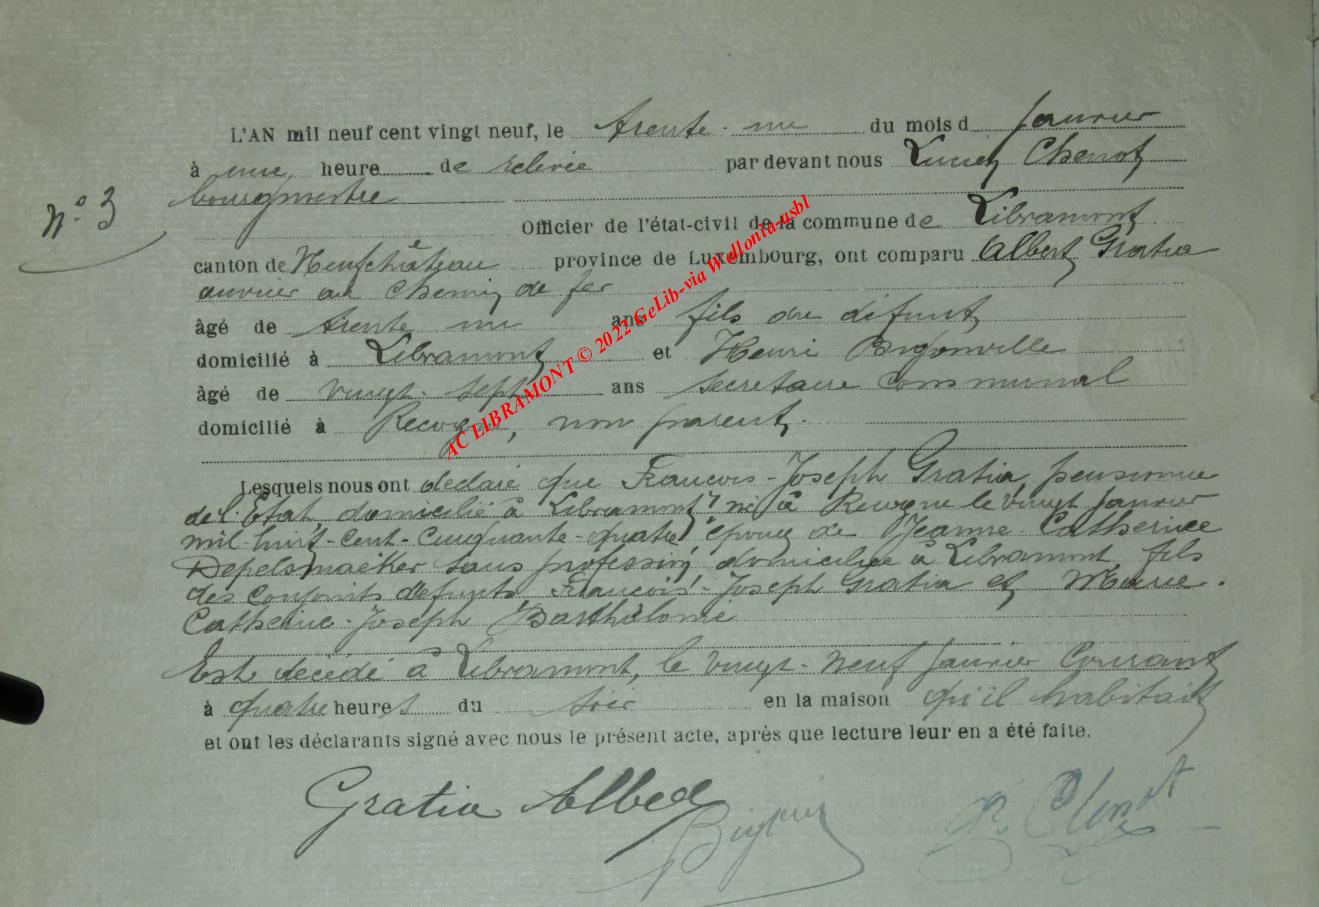 L'AN mil neuf cent vingt neuf, le trente-un du mois d Janvier
à une heure de relevée par devant nous Lucien Chenot
bourgmestre
N° 3
Officier de l'état-civil de la commune de Libramont
canton de Neufchâteau province de Luxembourg, ont comparu Albert Gratia
ouvrier au chemin de fer
âgé de trente un ans fils du défunt
domicilié à Libramont et Henri Bigonville
âgé de vingt-sept ans secrétaire communal
domicilié à Recogne, non parent.
AC LIBRAMONT © 2022 GeLib-via Wallonia-asbl
Lesquels nous ont déclaré que François-Joseph Gratia, pensionné
de l'Etat, domicilié à Libramont, né à Recogne le vingt Janvier
mil-huit-cent-cinquante-quatre, époux de Jeanne Catherine
Depelsmaeker sans profession, domiciliée à Libramont, fils
des conjoints défunts, François-Joseph Gratia et Marie-
Catherine-Joseph Barthélomi
Est décédé à Libramont, le vingt-neuf Janvier courant
à quatre heures du soir en la maison qu'il habitait
et ont les déclarants signé avec nous le présent acte, après que lecture leur en a été faite.
Gratia Albert
Chenot